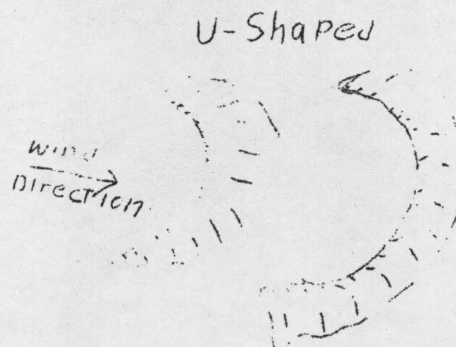 U-Shaped
Wind
Direction